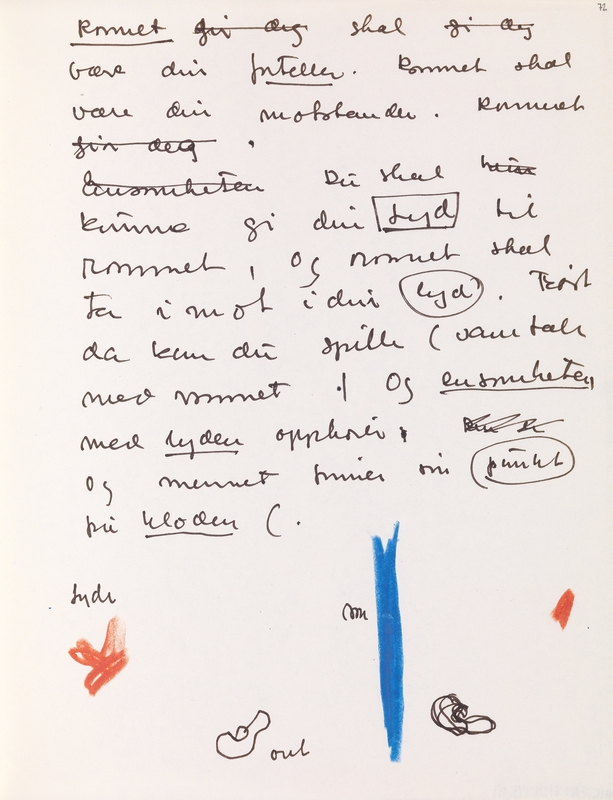 72
Rommet gir deg skal gi deg
være din forteller. Rommet skal
være din motstander. Rommet
gir deg .
Ensomheten Du skal
kunne gi din lyd til
rommet, og rommet skal
ta i mot i din lyd. Først
da kan du spille (samtale
med rommet .) Og ensomheten
med lyden opphører
og mennet finner sin punkt
på kloden (.
lyde
om
out